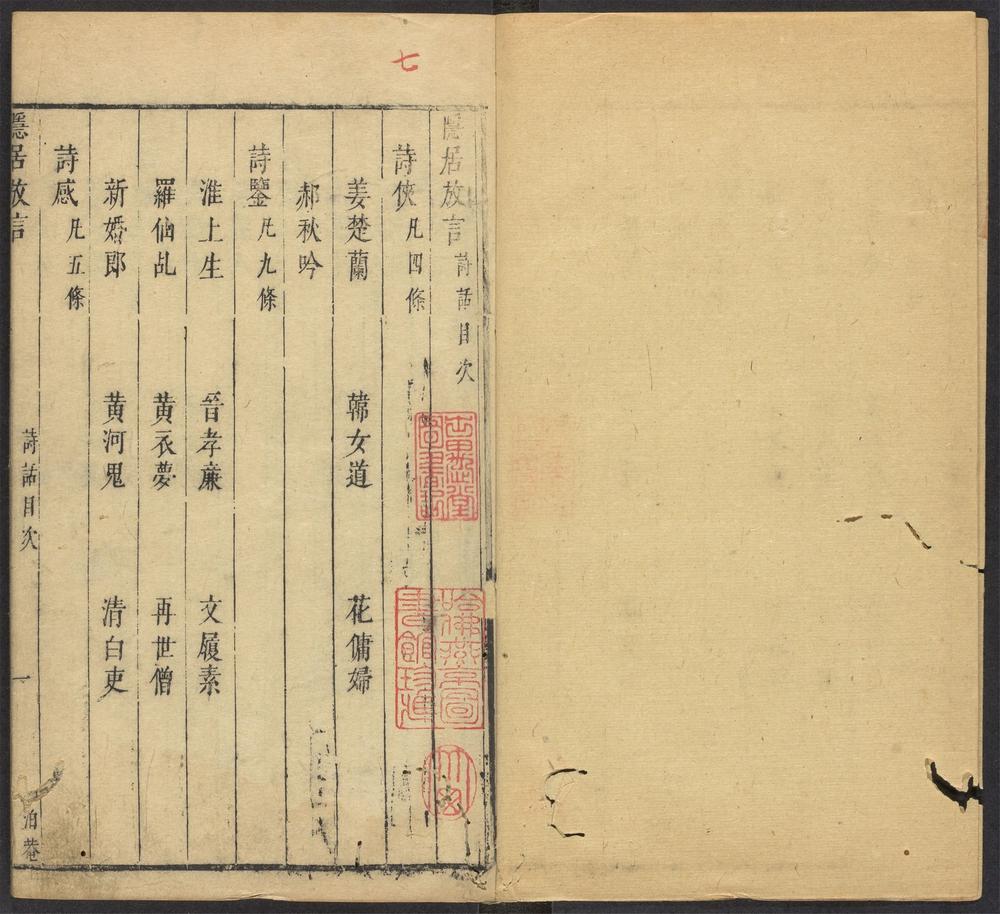 七
隱居放言 詩話目次
詩俠 凡四條
姜楚蘭 韓女道 花傭婦
郝秋吟
詩鑒 凡九條
淮上生 晉孝廉 文履素
羅仙乩 黃衣夢 再世僧
新婚郎 黃河鬼 清白吏
詩感 凡五條
隱居放言 詩話目次 一 泊菴
哈佛燕京圖書館珍藏